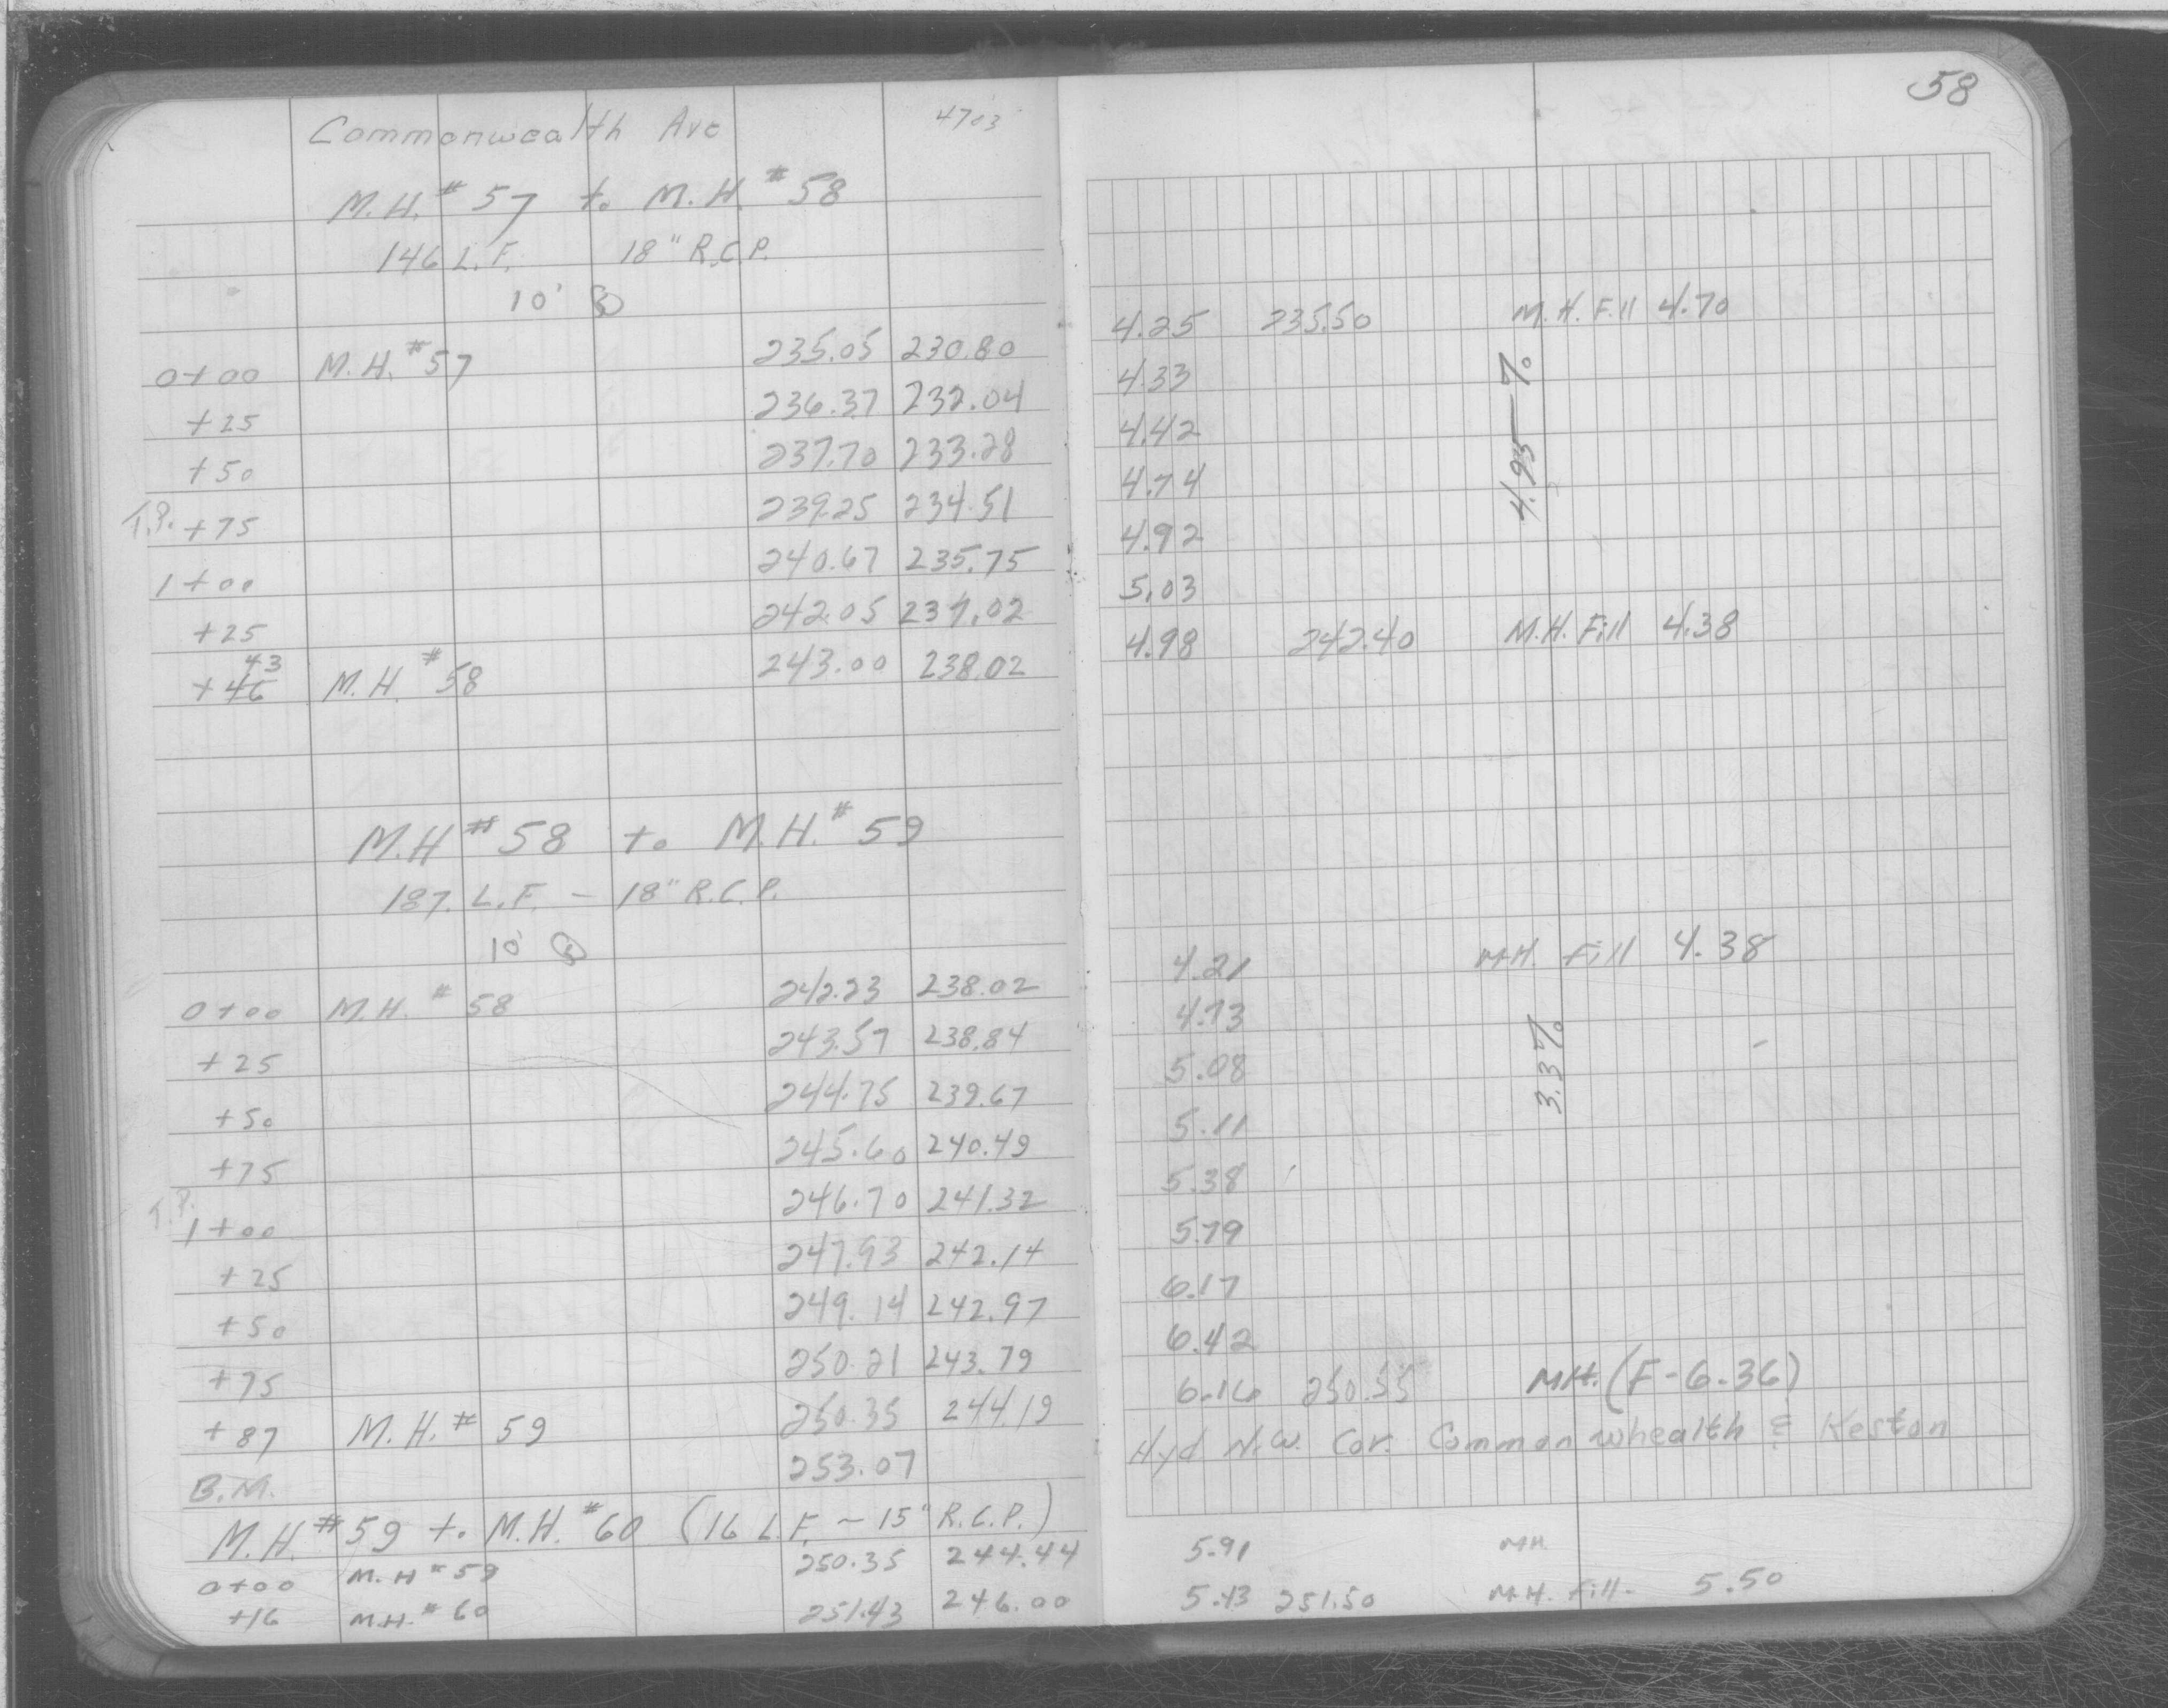 58
Commonwealth Ave 4703
M.H. #57 to M.H. #58
146 L.F. 18" R.C.P.
10'
0+00 M.H. #57 235.05 230.80 4.25 235.50 M.H. Fill 4.70
+25 236.37 232.04 4.33
+50 237.70 233.28 4.42
T.P. +75 239.25 234.51 4.74
4.95 %
1+00 240.67 235.75 4.92
+25 242.05 237.02 5.03
43
+46 M.H. #58 243.00 238.02 4.98 242.40 M.H. Fill 4.38
M.H #58 to M.H. #59
187. L.F. - 18" R.C.P.
10'
0+00 M.H. #58 242.23 238.02 4.21 M.H. Fill 4.38
+25 243.57 238.84 4.73
+50 244.75 239.67 5.08
3.3%
+75 245.60 240.49 5.11
T.P. 1+00 246.70 241.32 5.38
+25 247.93 242.14 5.79
+50 249.14 242.97 6.17
+75 250.21 243.79 6.42
+87 M.H. #59 250.35 244.19 6.16 250.55 MH. (F-6.36)
B.M. 253.07 Hyd N.W. Cor. Commonwhealth & Keston
M.H. #59 to M.H. #60 (16 L.F. ~ 15" R.C.P.)
0+00 M.H #59 250.35 244.44 5.91 MH.
+16 M.H. #60 251.43 246.00 5.43 251.50 M.H. Fill- 5.50